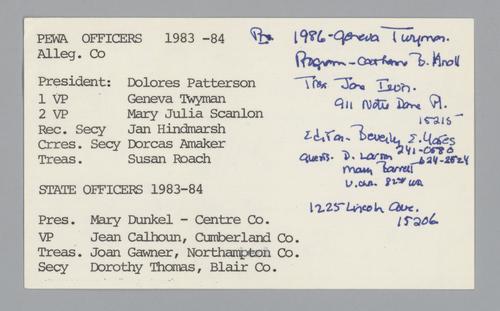 PEWA OFFICERS 1983 -84
Alleg. Co
President: Dolores Patterson
1 VP Geneva Twyman
2 VP Mary Julia Scanlon
Rec. Secy Jan Hindmarsh
Crres. Secy Dorcas Amaker
Treas. Susan Roach
STATE OFFICERS 1983-84
Pres. Mary Dunkel - Centre Co.
VP Jean Calhoun, Cumberland Co.
Treas. Joan Gawner, Northampton Co.
Secy Dorothy Thomas, Blair Co.
1986-Geneva Twyman
Program - Catherine B. Knoll
Tres Jane
911 Notre Dame Pl.
15215
Editor. Beverly E. Yates
241-0680
D. Larson 624-2524
Mary Barrett
1225 Lincoln Ave.
15206